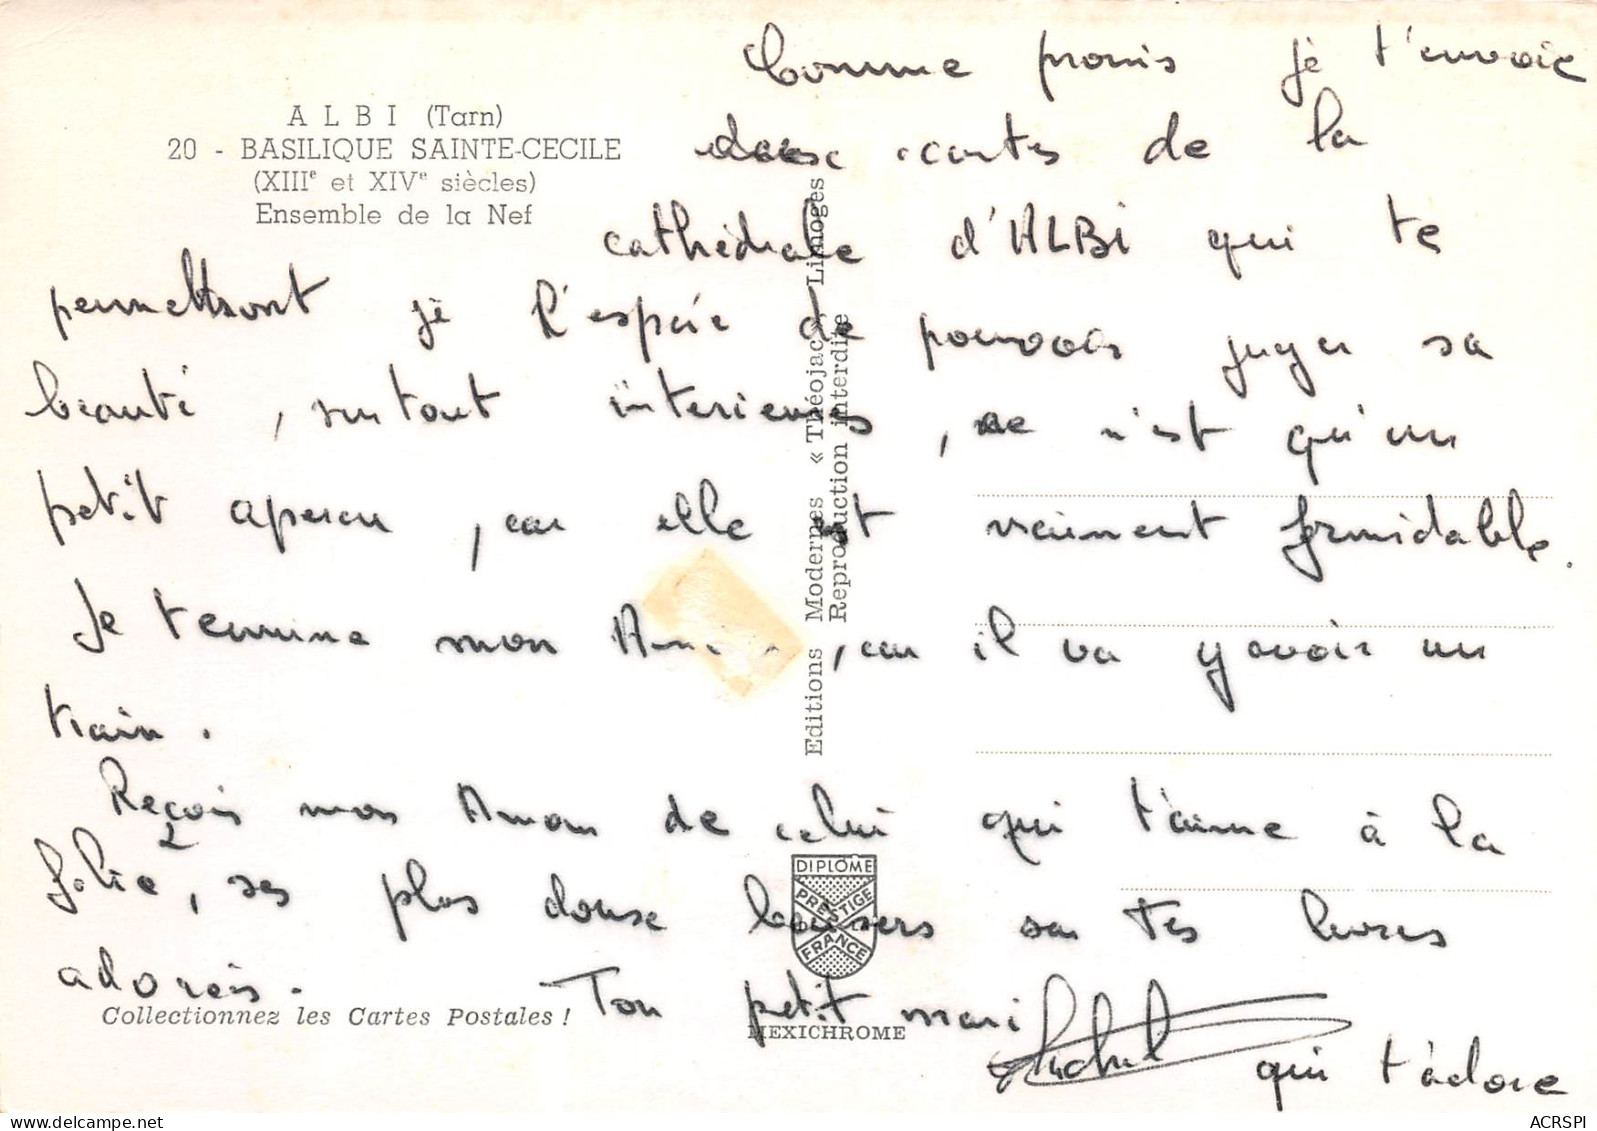 A L B I (Tarn)
20 - BASILIQUE SAINTE-CECILE
(XIIIe et XIVe siècles)
Ensemble de la Nef
Comme promis je t'envoie
cartes de la
cathédrale d'ALBI qui te
permettront je l'espère de pouvoir juger sa
beauté, surtout interieurs, ce n'est qu'un
petit apercu, car elle est vraiment formidable.
Je termine mon , car il va y avoir un
train.
Reçois mon Amour de celui qui t'aime à la
folie, ses plus douse baisers sur tes levres
adorés. Ton petit mari
Michel qui t'adore
Editions Modernes « Théojac » Limoges
Reproduction interdite
DIPLOME
PRESTIGE
DE LA
FRANCE
Collectionnez les Cartes Postales !
MEXICHROME
ACRSPI